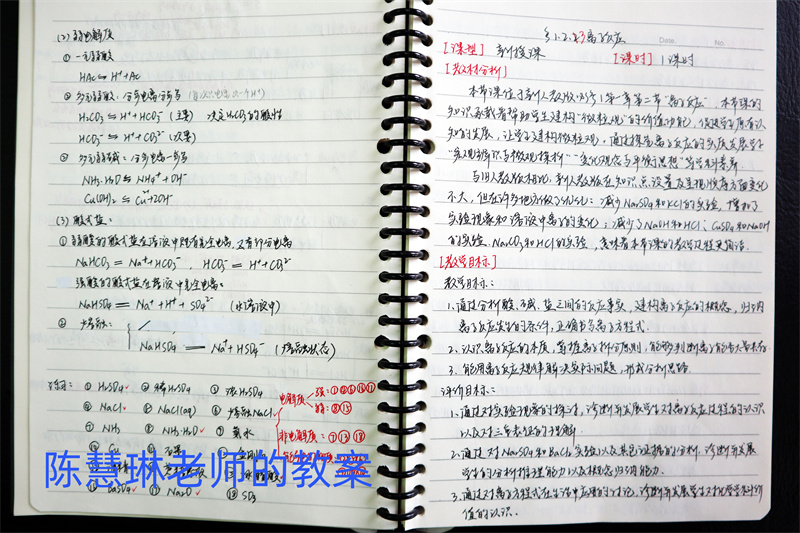 (2) 弱电解质
① 一元弱酸
HAc ⇌ H⁺ + Ac⁻
② 多元弱酸：分步电离分步写
H₂CO₃ ⇌ H⁺ + HCO₃⁻ (主要) 决定H₂CO₃的酸性
HCO₃⁻ ⇌ H⁺ + CO₃²⁻ (次要)
③ 多元弱碱：分步电离一步写
NH₃·H₂O ⇌ NH₄⁺ + OH⁻
Cu(OH)₂ ⇌ Cu²⁺ + 2OH⁻
(3) 酸式盐
① 弱酸的酸式盐在溶液中既有完全电离，又有部分电离
NaHCO₃ = Na⁺ + HCO₃⁻ , HCO₃⁻ = H⁺ + CO₃²⁻
强酸的酸式盐在溶液中完全电离
NaHSO₄ = Na⁺ + H⁺ + SO₄²⁻ (水溶液中)
② 熔融：
NaHSO₄ = Na⁺ + HSO₄⁻ (熔融状态)
练习： ① H₂SO₄ ② 稀H₂SO₄ ③ 浓H₂SO₄
④ NaCl ⑤ NaCl(aq) ⑥ 熔融NaCl
⑦ NH₃ ⑧ NH₃·H₂O ⑨ 氨水
电解质
强：
弱：
非电解质：
⑯ CaSO₄ ⑰ Na₂O ⑱ SO₃
陈慧琳老师的教案
§1.2.2.3 离子反应
Date. No.
[课型] 新授课 [课时] 1课时
[教材分析]
本节课位于新人教版必修1第一章第二节“离子反应”，本节课的
知识承载着帮助学生建构“微粒观”的价值功能，促进学生原有认
知的发展，让学生建构微粒观，通过探究离子反应的实质发展学生
“宏观辨识与微观探析”“变化观念与平衡思想”等学科素养。
与旧人教版相比，新人教版在知识点设置及呈现顺序方面变化
不大，但在许多地方做了优化：减少Na₂SO₄和KCl的实验，增加了
实验现象和溶液中离子的变化；减少了NaOH和HCl；CuSO₄和NaOH
的实验、Na₂CO₃和HCl的实验，意味着本节课的教学过程更简洁。
[教学目标]
教学目标：
1. 通过分析酸、碱、盐之间的反应事实，建构离子反应的概念，归纳
离子反应发生的条件，正确书写离子方程式。
2. 认识离子反应的本质，掌握离子拆分原则，能够判断离子能否大量共存
3. 能用离子反应规律解决实际问题，形成分析思路。
评价目标：
1. 通过对实验现象的描述，诊断并发展学生对离子反应过程的认识
以及对三重表征的理解
2. 通过对Na₂SO₄和BaCl₂实验以及其它证据的分析，诊断并发展
学生的分析推理能力以及概念归纳能力。
3. 通过对离子方程式在生活中应用的讨论，诊断并发展学生对化学学科价
值的认识。